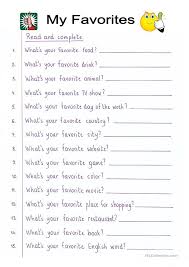 My Favorites
Read and complete.
1. What's your favorite food?
2. What's your favorite drink?
3. What's your favorite animal?
4. What's your favorite TV show?
5. What's your favorite day of the week?
6. What's your favorite country?
7. What's your favorite city?
8. What's your favorite website?
9. What's your favorite game?
10. What's your favorite color?
11. What's your favorite movie?
12. What's your favorite place for shopping?
13. What's your favorite restaurant?
14. What's your favorite book?
15. What's your favorite English word?